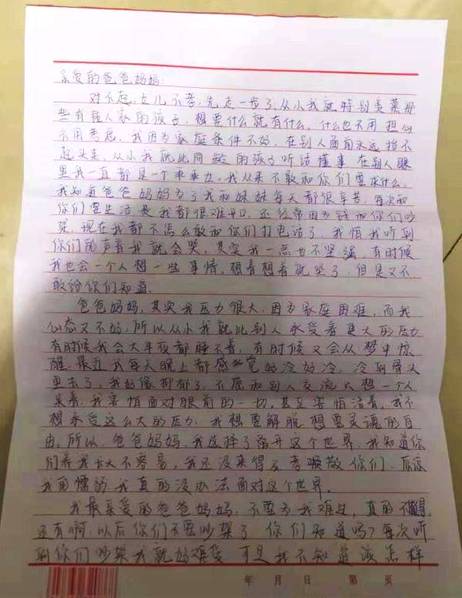 亲爱的爸爸妈妈:
对不起,女儿不孝,先走一步了,从小我就特别羡慕那
些有钱人家的孩子,想要什么就有什么,什么也不用担心
不用考虑,我因为家庭条件不好,在别人面前永远抬不
起头来,从小我就比同龄的孩子听话懂事,在别人眼
里我一直都是一个乖乖女,我从来不敢和你们要求什么,
我知道爸爸妈妈为了我和妹妹每天都很辛苦,每次和
你们要生活费我都很难开口,还经常因为钱和你们吵
架,现在我都不怎么敢和你们打电话了,我怕我听到
你们的声音我就会哭,其实我一点也不坚强,有时候
我也会一个人想一些事情,想着想着就哭了,但是又不
敢给你们知道
爸爸妈妈,其实我压力很大,因为家庭困难,而我
心态又不好,所以从小我就比别人承受着更大的压力
有时候我会大半夜都睡不着,有时候又会从梦中惊
醒,最近我每天晚上都感觉的冷好冷,
更古了,我好像抑郁了,不愿和别人交流只想一个人
呆着,我害怕面对眼前的一切,甚至害怕活着,我不
想承受这么大的压力,我想要解脱,想要灵魂的自
由,所以,爸爸妈妈,我选择了离开这个世界,我知道你
们养我长大不容易,我还没来得及孝顺敬你们,原谅
我的懦弱我真的没办法面对这个世界.
我最亲爱的爸爸妈妈,不要为我难过,真的不值得
还有啊,以后你们不要吵架了,你们知道吗?每次听
到你们吵架我就好难受,可是我不知道该怎样
年 月 日 第 页